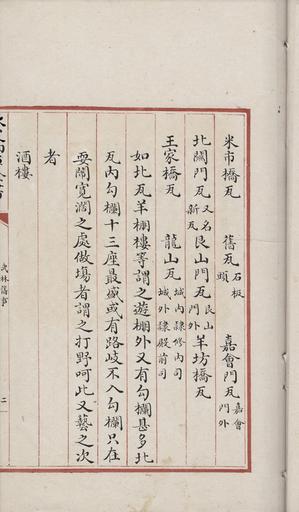 米市橋瓦 舊瓦石板頭 嘉會門瓦嘉會門外
北關門瓦又名新瓦 艮山門瓦艮山門外 羊坊橋瓦
王家橋瓦 龍山瓦城內隸修內司城外隸殿前司
如北瓦羊棚樓等謂之遊棚外又有勾欄甚多北
瓦內勾欄十三座最盛或有路歧不入勾欄只在
耍鬧寬濶之處做場者謂之打野呵此又藝之次
者
酒樓
武林舊事
二